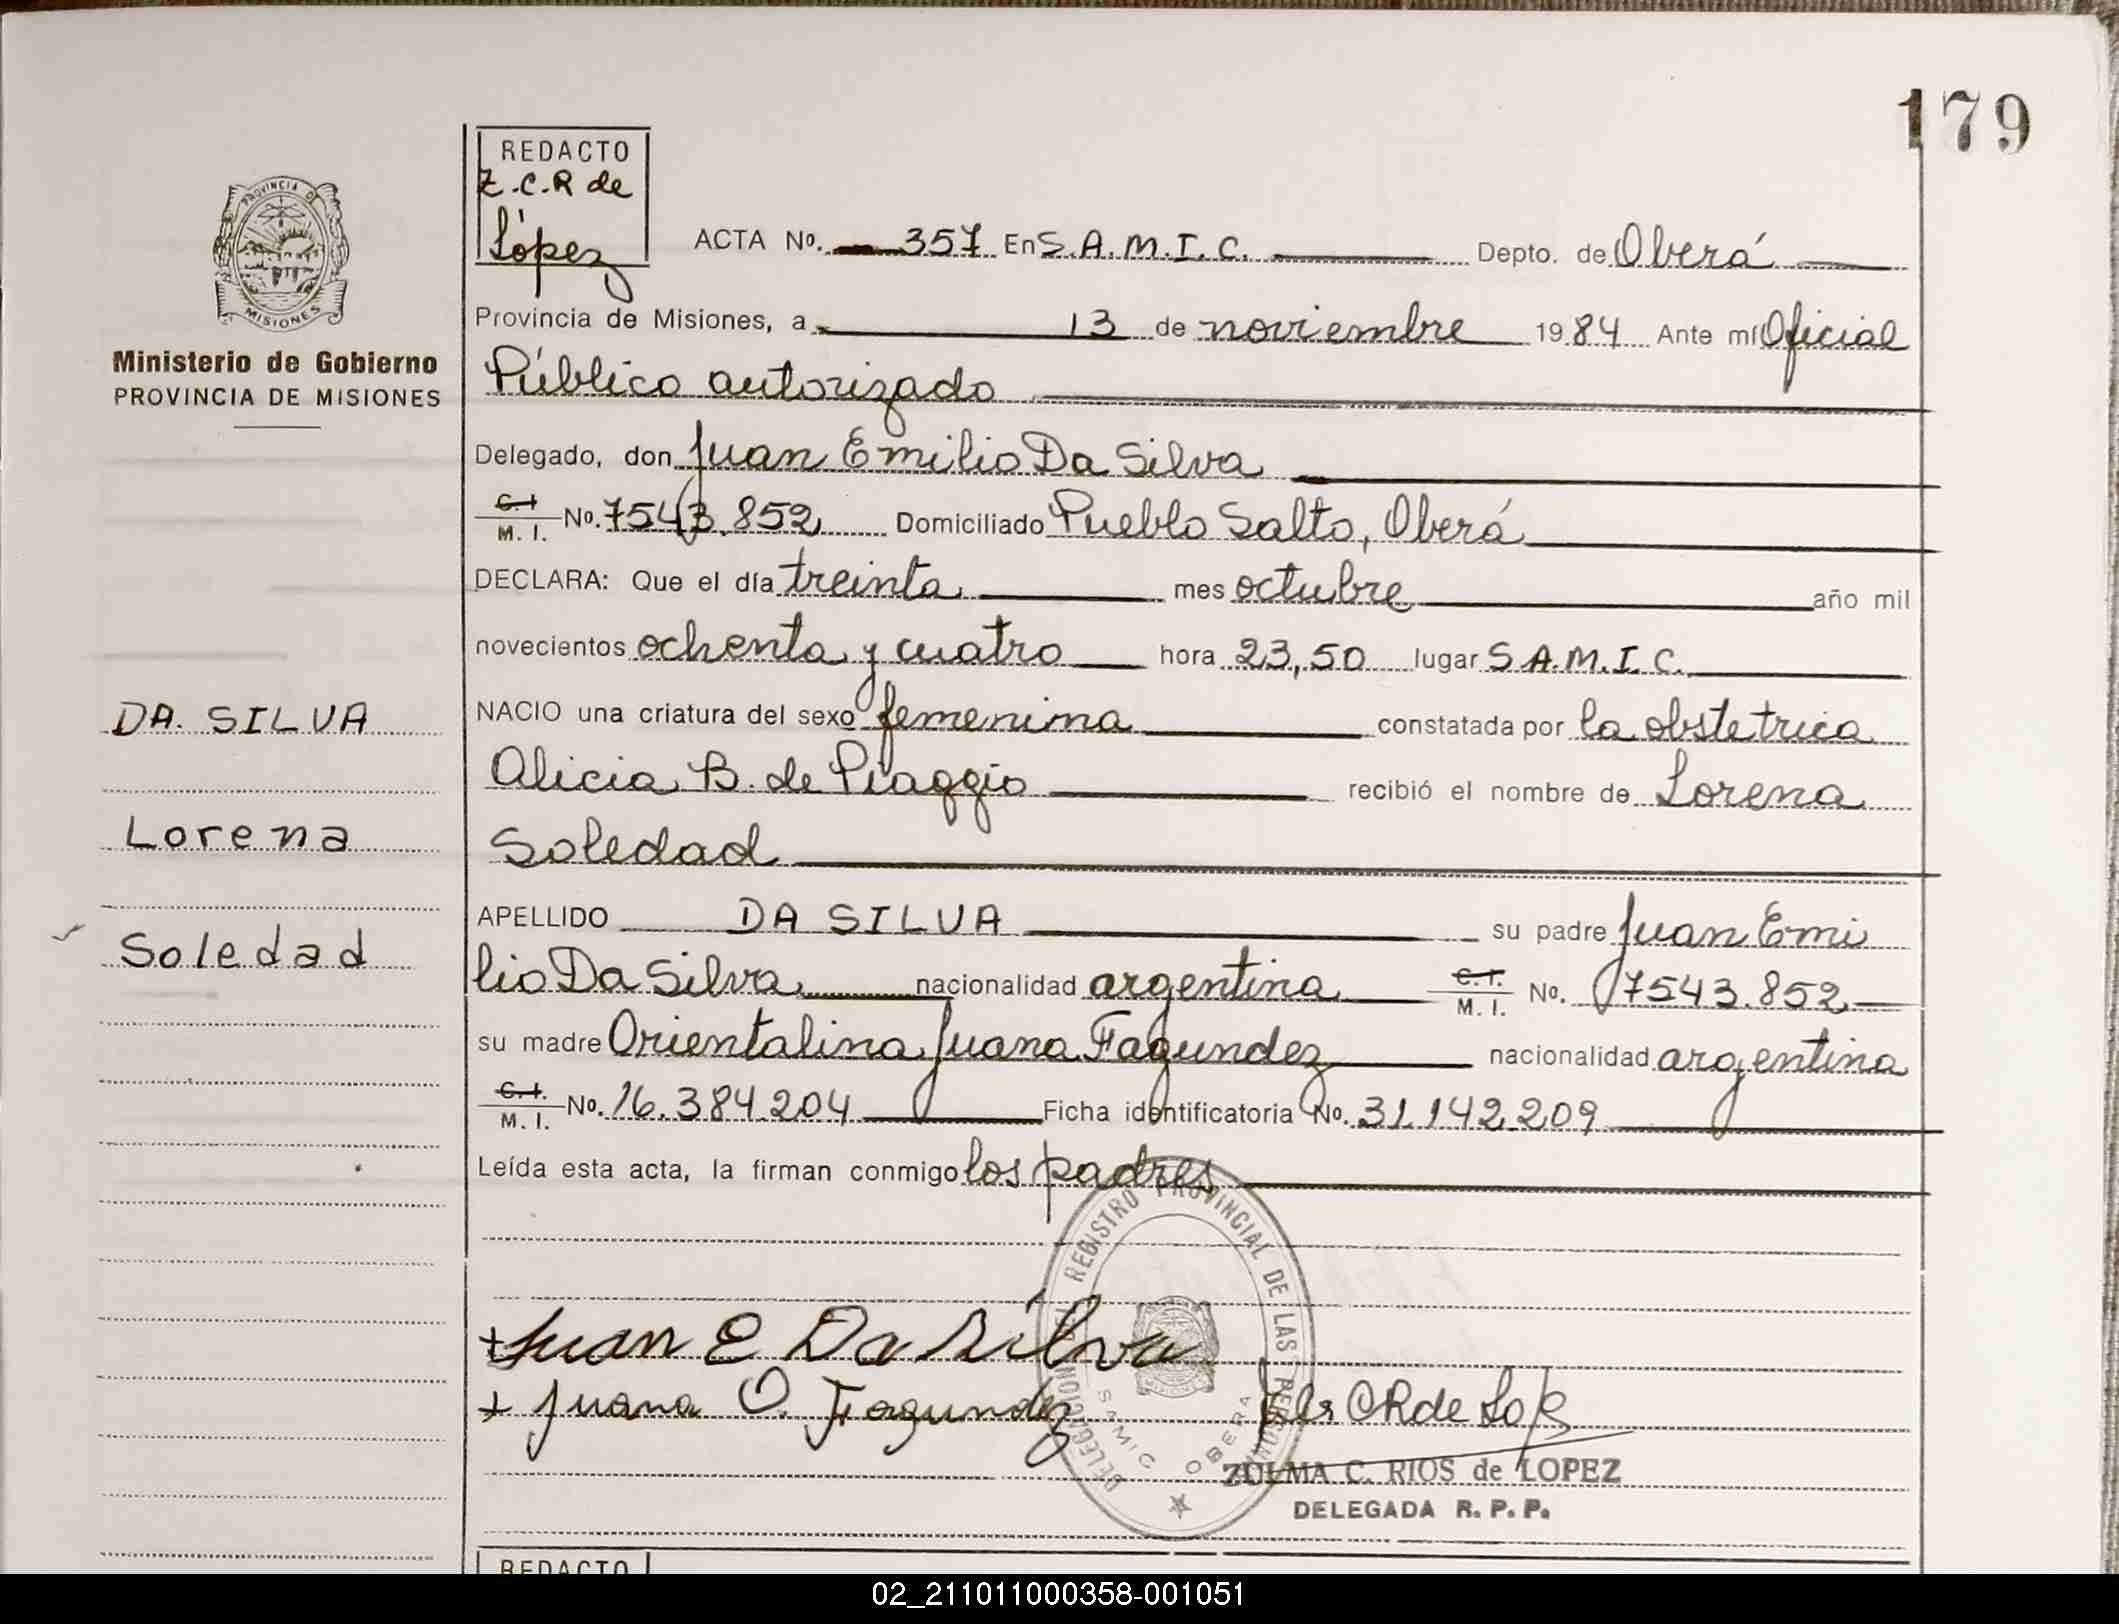 179
REDACTO
Z.C.R de
López
ACTA No. 357 En S.A.M.I.C. Depto. de Oberá
PROVINCIA DE
MISIONES
Provincia de Misiones, a 13 de noviembre 1984 Ante mí Oficial
Ministerio de Gobierno
PROVINCIA DE MISIONES
Público autorizado
Delegado, don Juan Emilio Da Silva
C.I
M. I. No. 7543.852 Domiciliado Pueblo Salto, Oberá
DECLARA: Que el día treinta mes octubre año mil
novecientos ochenta y cuatro hora 23,50 lugar S.A.M.I.C.
DA. SILVA
NACIO una criatura del sexo femenina constatada por la obstetrica
Alicia B. de Piaggio recibió el nombre de Lorena
Lorena
Soledad
APELLIDO DA SILVA su padre Juan Emi
Soledad
lio Da Silva nacionalidad argentina C.I. M. I. No. 7543.852
su madre Orientalina Juana Fagundez nacionalidad argentina
C.I.
M. I. No. 16.384.204 Ficha identificatoria No. 31.142.209
Leída esta acta, la firman conmigo los padres
REGISTRO PROVINCIAL DE LAS PERSONAS
+ Juan E Da Silva
+ Juana O. Fagundez
SAMIC OBERA
ZULMA C. RIOS de LOPEZ
DELEGADA R. P. P.
REDACTO
02_211011000358-001051